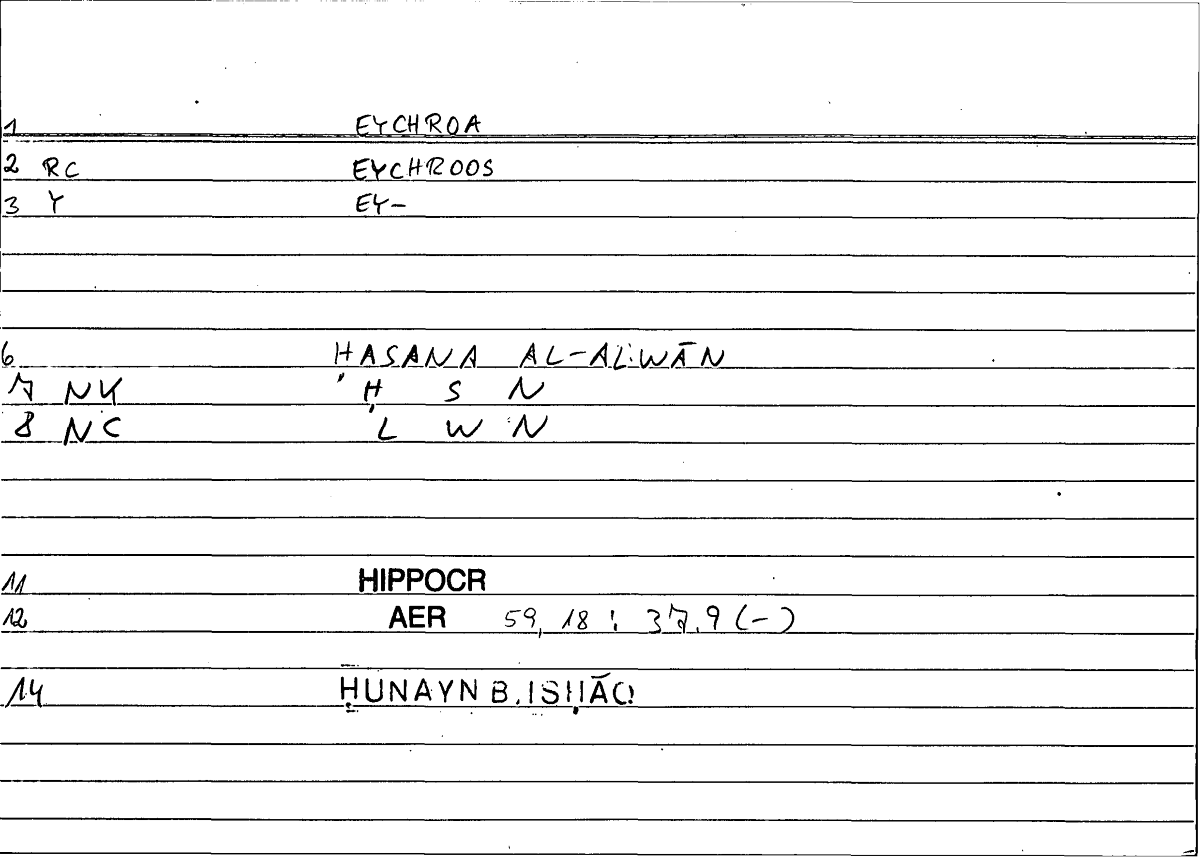 1 EYCHROA
2 RC EYCHROOS
3 Y EY-
6 ḤASANA AL-ALWĀN
7 NK Ḥ S N
8 NC L W N
11 HIPPOCR
12 AER 59, 18 : 37.9 (-)
14 ḤUNAYN B. ISḤĀQ